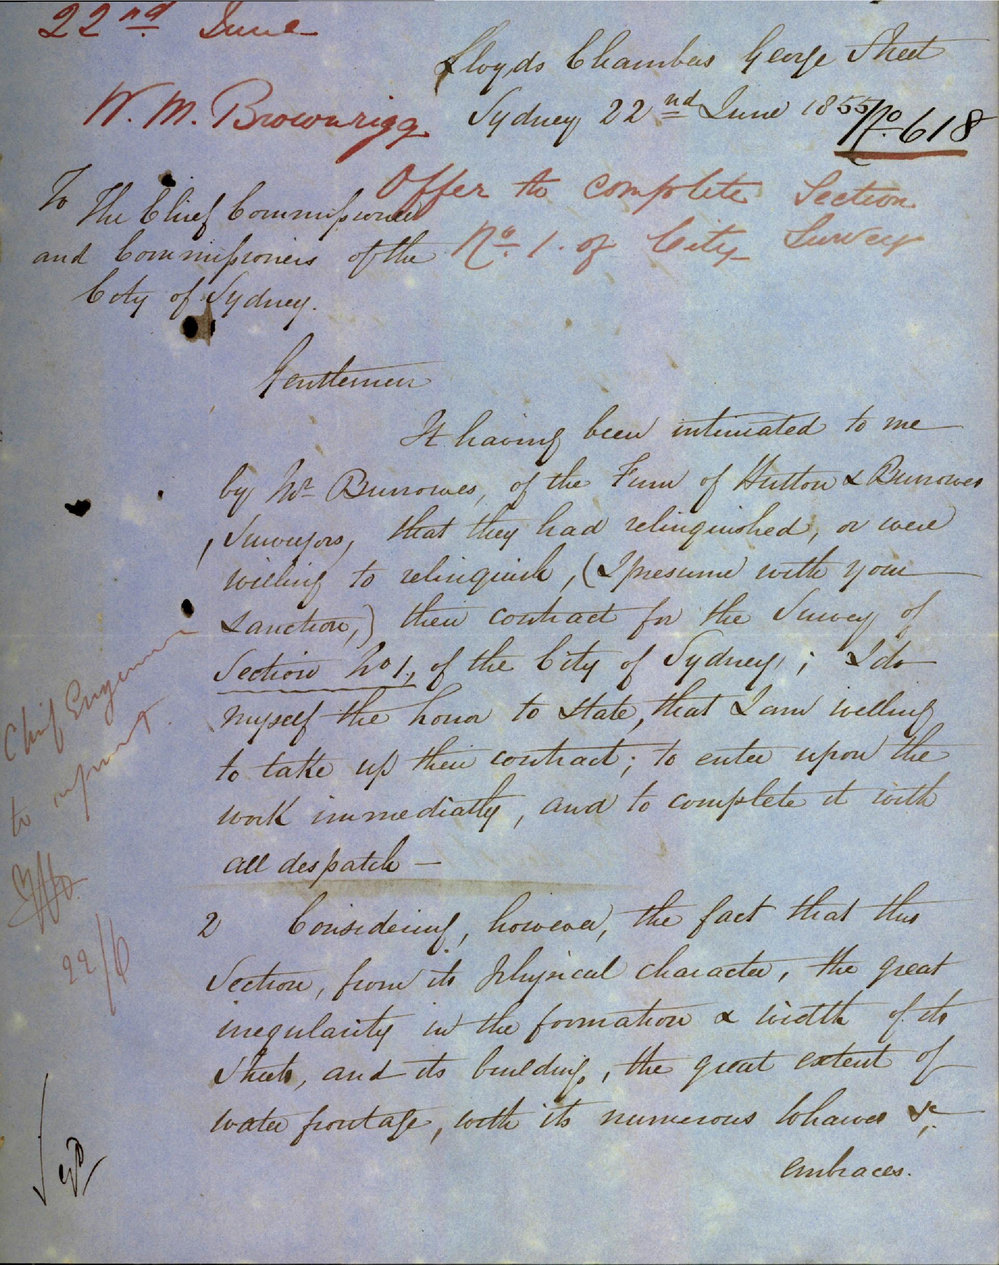 22nd June
W. M. Brownrigg
Lloyds Chambers George Street
Sydney 22nd June 1855
No. 618
Offer to complete Section
No. 1. of City Survey
To The Chief Commissioner
and Commissioners of the
City of Sydney.
Gentlemen
It having been intimated to me
by Mr Burrowes, of the Firm of Hutton & Burrowes
Surveyors, that they had relinquished, or were
willing to relinquish, (I presume with your
sanction,) their contract for the Survey of
Section No 1, of the City of Sydney; I do
myself the honor to state, that I am willing
to take up their contract; to enter upon the
work immediatly, and to complete it with
all despatch —
2 Considering, however, the fact that this
Section, from its physical character, the great
irregularity in the formation & width of its
Streets, and its building, the great extent of
water frontage, with its numerous Wharves &c
embraces.
Chief Engineer
to report
22/6